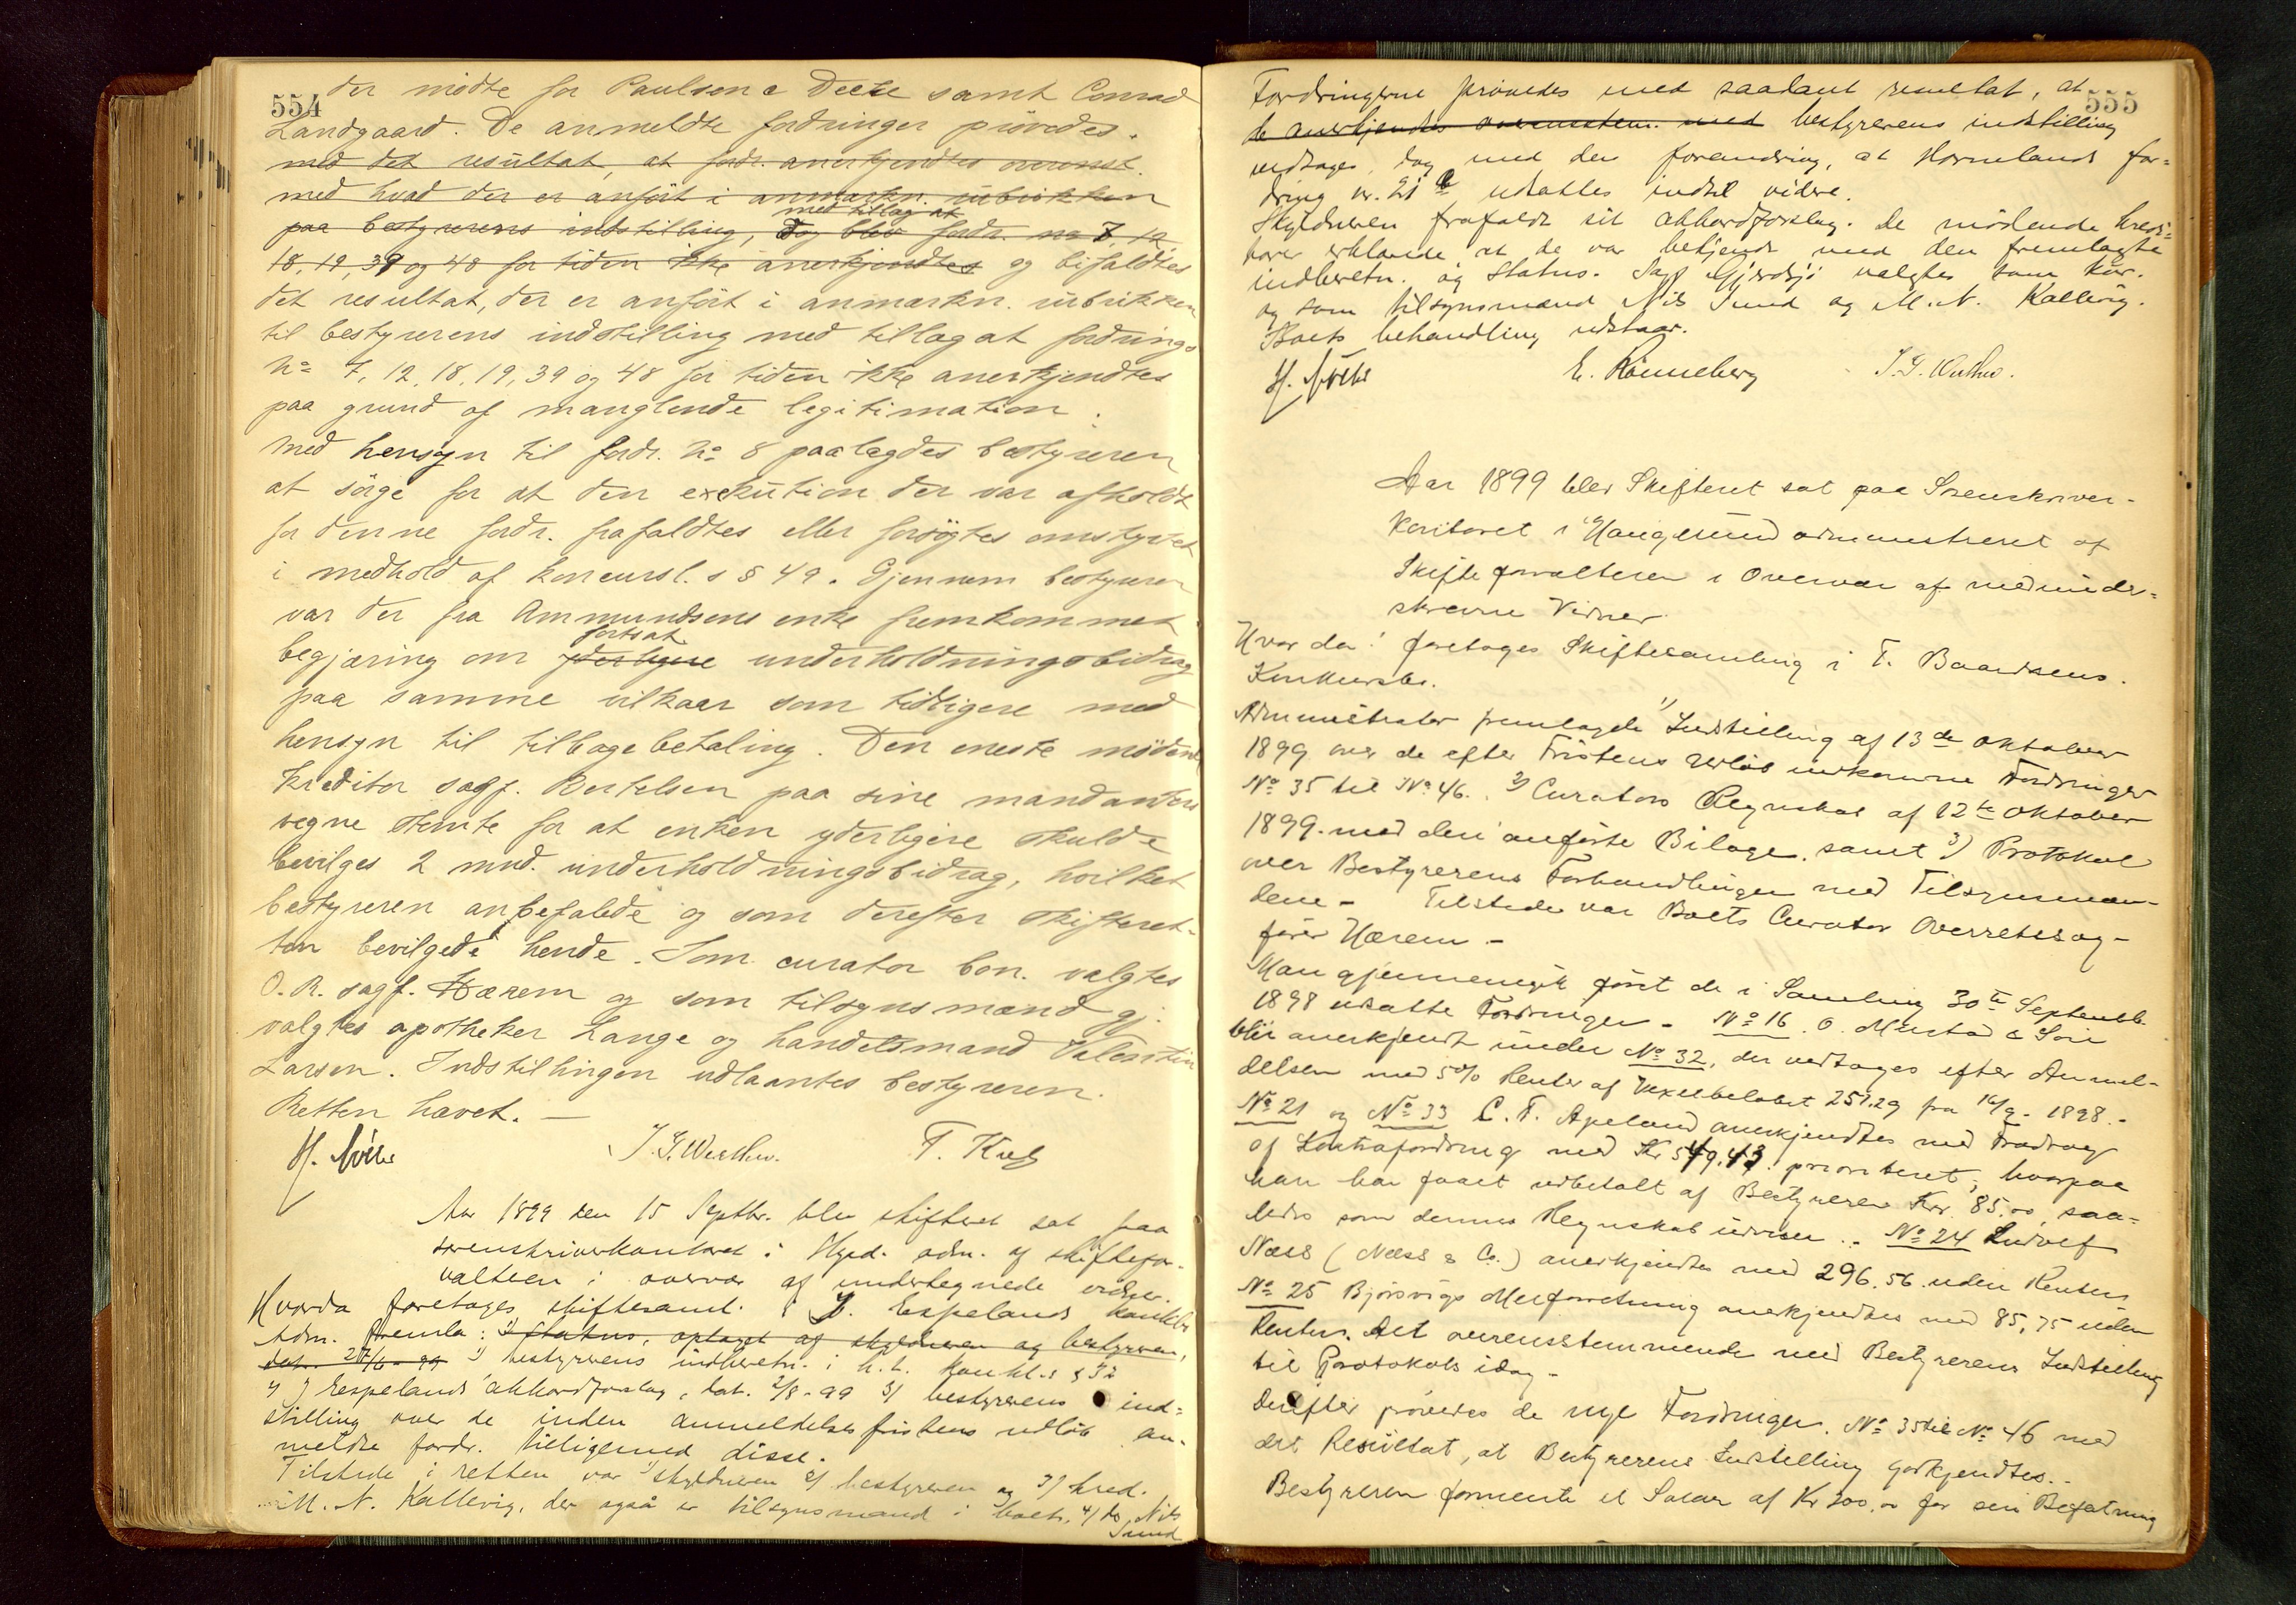 554
der mødte for Paulsen & Deeke samt Conrad
Landgaard. De anmeldte fordringer prøvedes.
med det resultat, at fordr. anerkjendtes overenst.
med hvad der er anført i anmærkn. rubrikken
med tillæg at
paa bestyrerens indstilling, dog blev fordr. no 7, 12,
18, 19, 39 og 48 for tiden ikke anerkjendtes og bifaldtes
det resultat, der er anført i anmærkn. rubrikken
til bestyrerens indstilling med tillæg at fordrings
No 7, 12, 18, 19, 39 og 48 for tiden ikke anerkjendtes
paa grund af manglende legitimation.
Med hensyn til fordr. No 8 paalagdes bestyreren
at sørge for at den exekution der var afholdt
for denne fordr. frafaldtes eller forsøgtes omstyrtet
i medhold af konkursl.s § 49. Gjennem bestyreren
var der fra Ammundsens enke fremkommet
fortsat
begjæring om yderligere underholdningsbidrag
paa samme vilkaar som tidligere med
hensyn til tilbagebetaling. Den eneste mødende
kreditor sagf. Bertelsen paa sine mandanters
vegne stemte for at enken yderligere skulde
bevilges 2 mnd. underholdningsbidrag, hvilket
bestyreren anbefalede og som derefter skifteret-
ten bevilgede hende. Som curator bon. valgtes
O.R. sagf. Hærem og som tilsynsmænd gj.
valgtes apotheker Lange og handelsmand Valentin
Larsen. Indstillingen udlaantes bestyreren.
Retten hævet. —
H.
J. G. Wesths. T.
Aar 1899 den 15 Septbr. blev skifteret sat paa
sorenskriverkontoret i Hgsd. adm. af skiftefor-
valteren i overvær af undertegnede vidner.
Hvorda foretoges skiftesaml. i J. Espelands konkbo
Adm. fremla: 1) status, optaget af skyldneren og bestyreren,
dat. 27/6-99 1) bestyrerens indberetn. i h.t. konkl.s §
2) J Espelands akkordforslag, dat. 2/8-99 3) bestyrerens ind=
stilling over de inden anmeldelsesfristens udløb an-
meldte fordr. tilligemed disse.
Tilstede i retten var 1) skyldneren 2) bestyreren og 3) kred.
M. N. Kallevig, der også er tilsynsmand i boet, 4) do Nils
Sund
555
Fordringerne prøvedes med saadant resultat, at
de anerkjendtes overenstem. med bestyrerens indstilling
vedtoges, dog med den forandring, at Hornelands for=
dring nr. 21 udsattes indtil videre.
Skyldneren frafaldt sit akkordforslag. De mødende kredi=
torer erklærede at de var bekjendt med den fremlagte
indberetn. og Status. Sagf Gjerdsjø valgtes som kur.
og som tilsynsmænd Nils Sund og M. N. Kallevig.
Boets behandling udstaar.
H. E. Rønneberg J. G. Wesths.
Aar 1899 blev Skifteret sat paa Sorenskriver-
kontoret i Haugesund administreret af
Skifteforvalteren i Overvær af nedunder=
skrevne Vidner.
Hvor da: foretoges Skiftesamling i T. Baardsens
Konkursbo.
Administrator fremlagde 1) Indstilling af 13de Oktober
1899 over de efter Fristens Udløb indkomne Fordringer
No 35 til No 46. 2) Curators Regnskab af 12te Oktober
1899. med den anførte Bilage, samt 3) Protokol
over Bestyrerens Forhandlinger med Tilsynsmæn-
dene - Tilstede var Boets Curator Overretssag-
fører Hærem -
Man gjennemgik først de i Samling 30te Septemb.
1898 udsatte Fordringer - No 16. O. Mustad & Søn
blir anerkjendt under No 32, der vedtages efter Anmel-
delsen med 5% Renter af Vexelbeløbet 251.29 fra 16/9-1898.-
No 21 og No 33 C. T. Apeland anerkjendtes med Fradrag
af Kontrafordring med Kr 549.43 prioriteret, hvorpaa
han har faaet udbetalt af Bestyreren Kr. 85.00, saa=
ledes som dennes Regnskab udviser. - No 24 Ludolf
Næss (Næss & Co.) anerkjendtes med 296.56 uden Renter
No 25 Bjørsvigs Mølforretning anerkjendtes med 85,75 uden
Renter. Alt overensstemmende med Bestyrerens Indstilling
til Protokols idag -
Derefter prøvedes de nye Fordringer. No 35 til No 46 med
det Resultat, at Bestyrerens Indstilling godkjendtes. -
Bestyreren formente et Salær af Kr 300,00 for sin Befatning